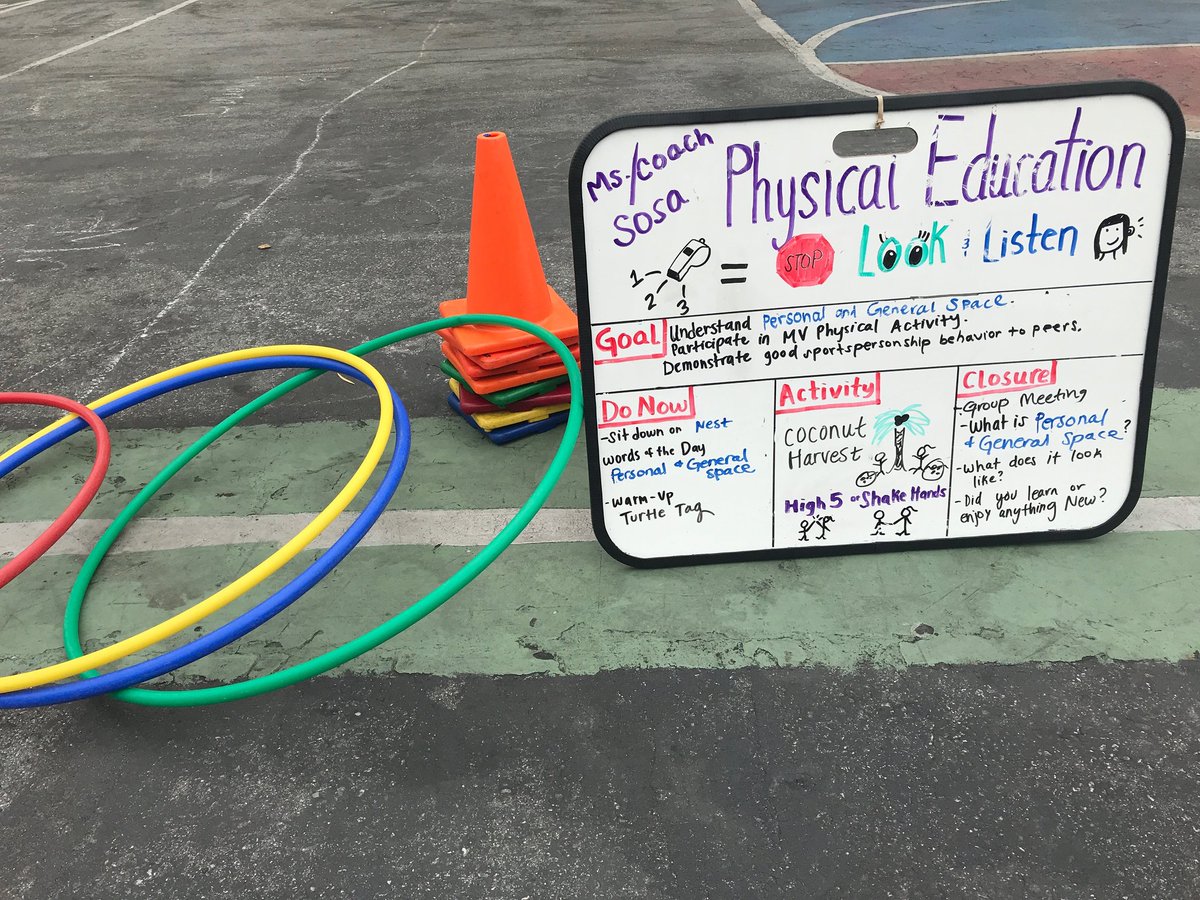 Ms./Coach
Sosa
Physical Education
1
2
3
=
STOP
Look & Listen
Goal
Understand Personal and General Space.
Participate in MV Physical Activity.
Demonstrate good sportspersonship behavior to peers.
Do Now
- Sit down on Nest
words of the Day
Personal & General
space
- Warm-up
Turtle Tag
Activity
Coconut
Harvest
High 5 or Shake Hands
Closure
- Group Meeting
- What is Personal
& General Space?
- What does it look
like?
- Did you learn or
enjoy anything New?